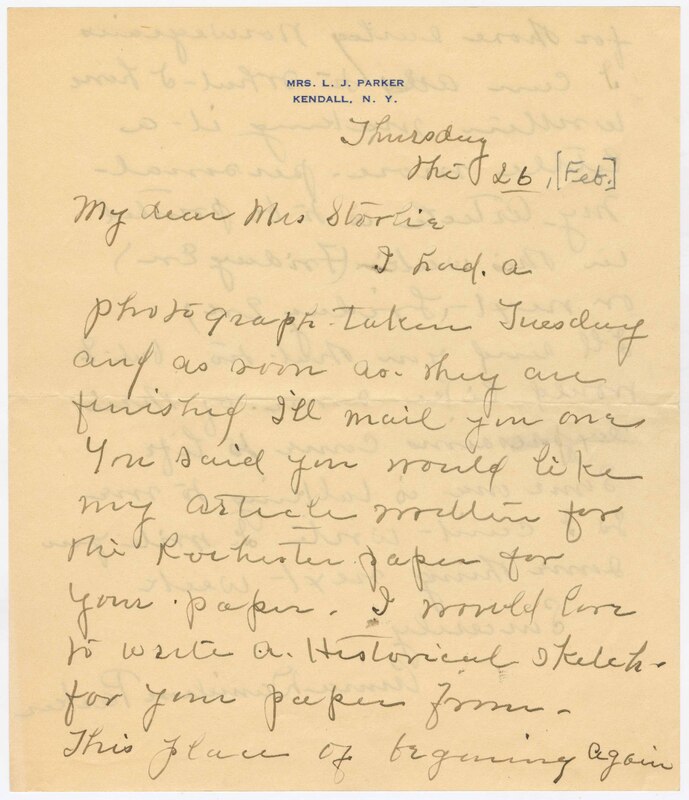 MRS. L. J. PARKER
KENDALL, N. Y.
Thursday
the 26, [Feb.]
My dear Mrs Storlie
I had. a
photograph taken Tuesday
and as soon as they are
finished I'll mail you one
You said you would like
my article written for
the Rochester paper for
your paper. I would love
to write a Historical Sketch
for your paper from
This place of begining again